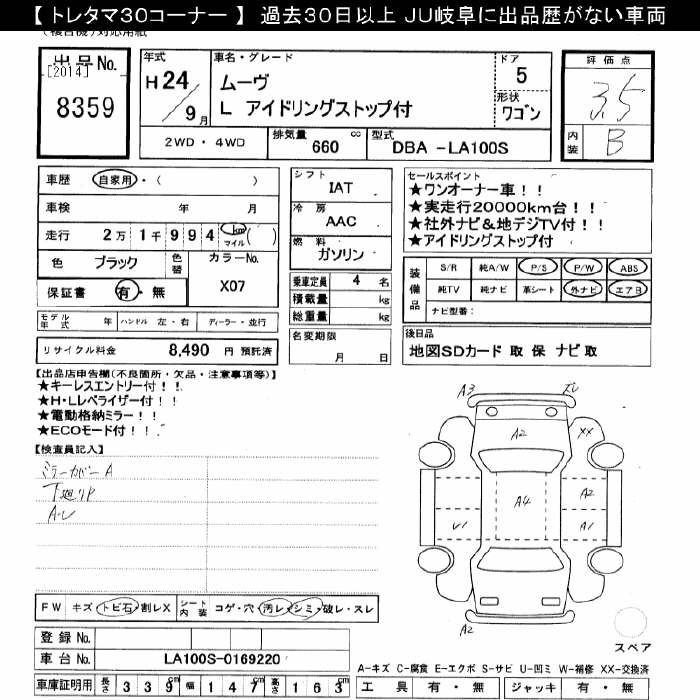 【 トレタマ30コーナー 】 過去30日以上 JU岐阜に出品歴がない車両
(複合機)対応用紙
出品No.
[2014]
8359
年式
H 24 / 9 月
車名・グレード
ムーヴ
L アイドリングストップ付
ドア
5
形状
ワゴン
評価点
3.5
内装
B
2WD・4WD
排気量
660 cc
型式
DBA -LA100S
車歴 自家用・( )
車検 年 月
走行 2万 1千 9 9 4 km マイル ( )
色 ブラック 色替
カラーNo.
X07
保証書 有・無
シフト
IAT
冷房
AAC
燃料
ガソリン
乗車定員 4 名
積載量 kg
総重量 kg
セールスポイント
★ワンオーナー車！！
★実走行20000km台！！
★社外ナビ＆地デジTV付！！
★アイドリングストップ付
装備品
S/R 純A/W P/S P/W ABS
純TV 純ナビ 革シート 外ナビ エアB
ナビ型番：
モデル年式 年 ハンドル 左・右 ディーラー・並行
リサイクル料金 8,490 円 預託済
名変期限
月 日
後日品
地図SDカード 取 保 ナビ取
【出品店申告欄(不良箇所・欠品・注意事項等)】
★キーレスエントリー付！！
★H・Lレベライザー付！！
★電動格納ミラー！！
★ECOモード付！！
【検査員記入】
ミラーカバー A
下廻りP
A・U
A3
A2
XX
A4
A2
U1
A1
A2
FW キズ トビ石・割レX
シート内装 コゲ・穴・汚レ・シミ・破レ・スレ
登録No.
車台No. LA100S-0169220
車庫証明用 長さ 3 3 9 幅 1 4 7 高さ 1 6 3
スペア
A-キズ C-腐食 E-エクボ S-サビ U-凹ミ W-補修 XX-交換済
工具 有・無 ジャッキ 有・無